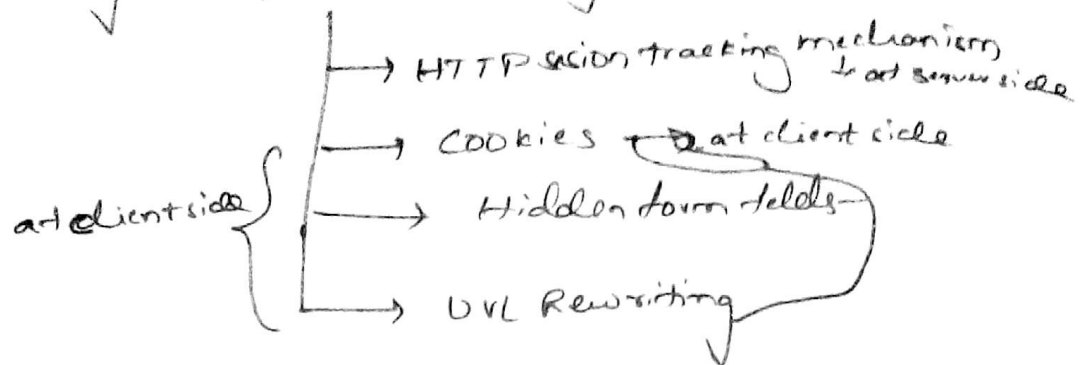 HTTP session tracking mechanism
at server side
Cookies → at client side
at client side
Hidden form fields
URL Rewriting